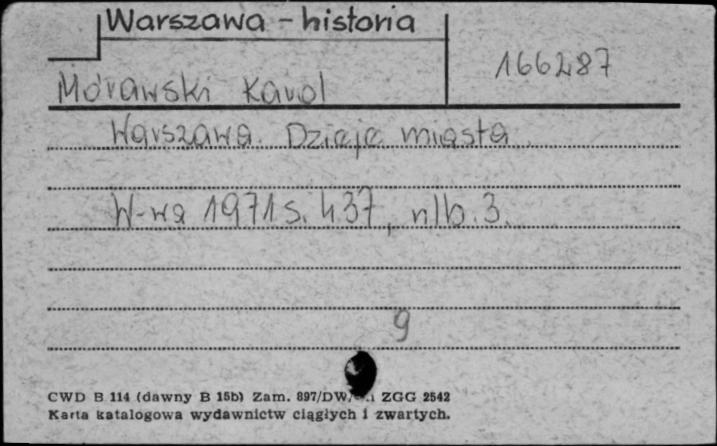 Warszawa - historia
166287
Morawski Karol
Warszawa. Dzieje miasta.
W-wa 1971 s. 437, nlb. 3.
9
CWD B 114 (dawny B 15b) Zam. 897/DW/ ZGG 2542
Karta katalogowa wydawnictw ciągłych i zwartych.